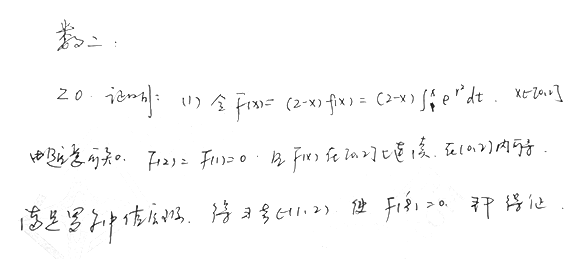 数二：
20. 证明: (1) 令 F(x) = (2-x) f(x) = (2-x) ∫₁ˣ e^{t²} dt. x∈[0,2]
由题意可知. F(2) = F(1) = 0. 且 F(x) 在[0,2]上连续, 在(0,2)内可导.
满足罗尔中值定理. 得 ∃ ξ∈(1,2) 使 F'(ξ) = 0. 即得证